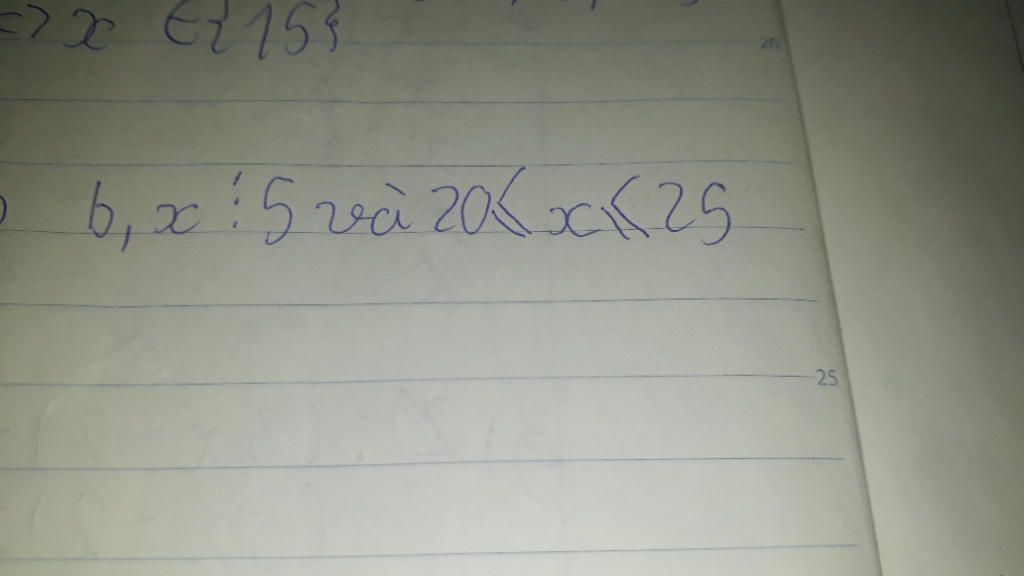 => x ∈ {15}
20
b, x ⋮ 5 và 20 ⩽ x ⩽ 25
25